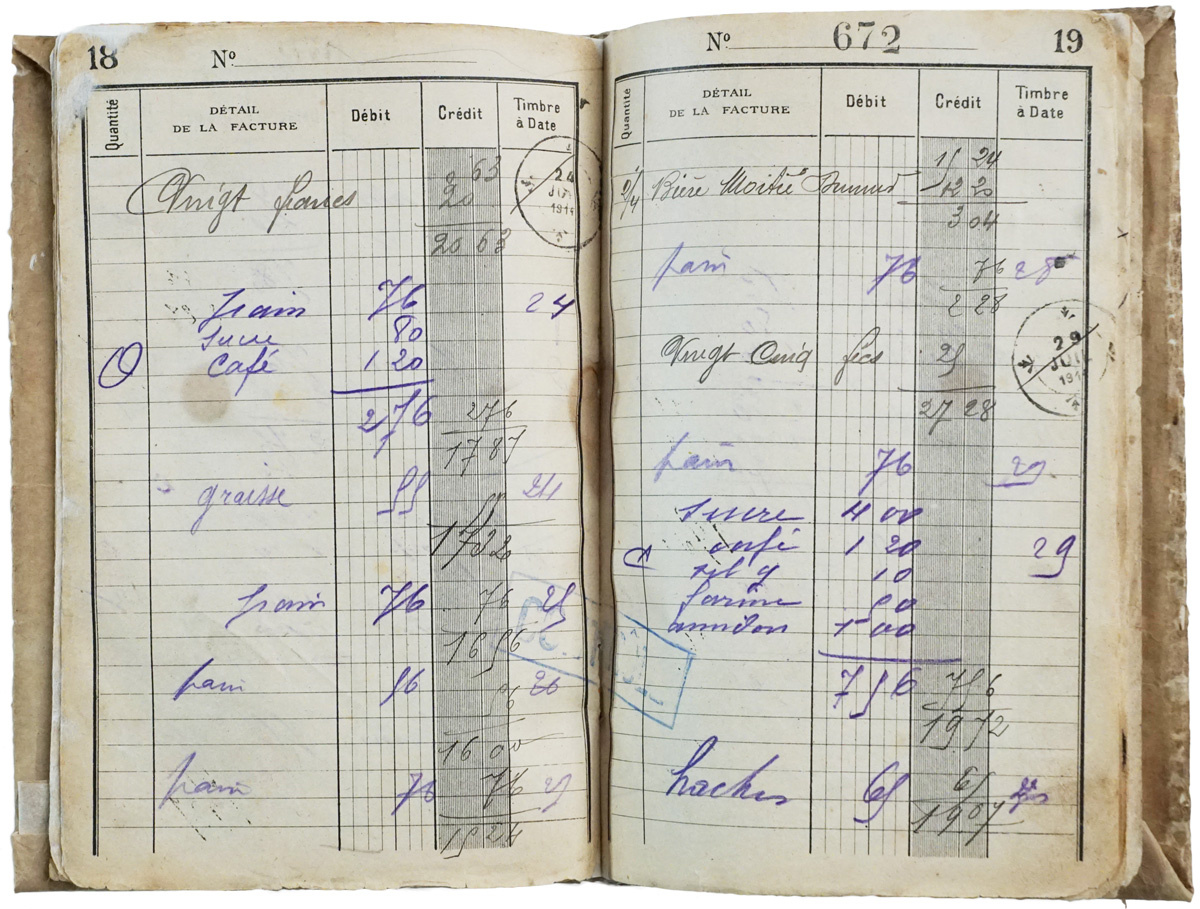 18 Nº
Quantité DÉTAIL DE LA FACTURE Débit Crédit Timbre à Date
63
Vingt francs 20
24 JUI 191
20 63
pain 76 24
sucre 80
Café 1 20
2 76 276
17 87
graisse 55 24
55
1732
pain 76 76 25
16 56
pain 56 56 26
16 00
pain 76 76 27
15 24
Nº 672 19
Quantité DÉTAIL DE LA FACTURE Débit Crédit Timbre à Date
15 24
Bière Moitié 12 20
3 04
pain 76 76 28
2 28
Vingt Cinq fcs 25
29 JUI 191
27 28
pain 76 29
sucre 4 00
café 1 20 29
10
farine 50
amidon 1 00
7 56 756
19 72
65 65
19 07